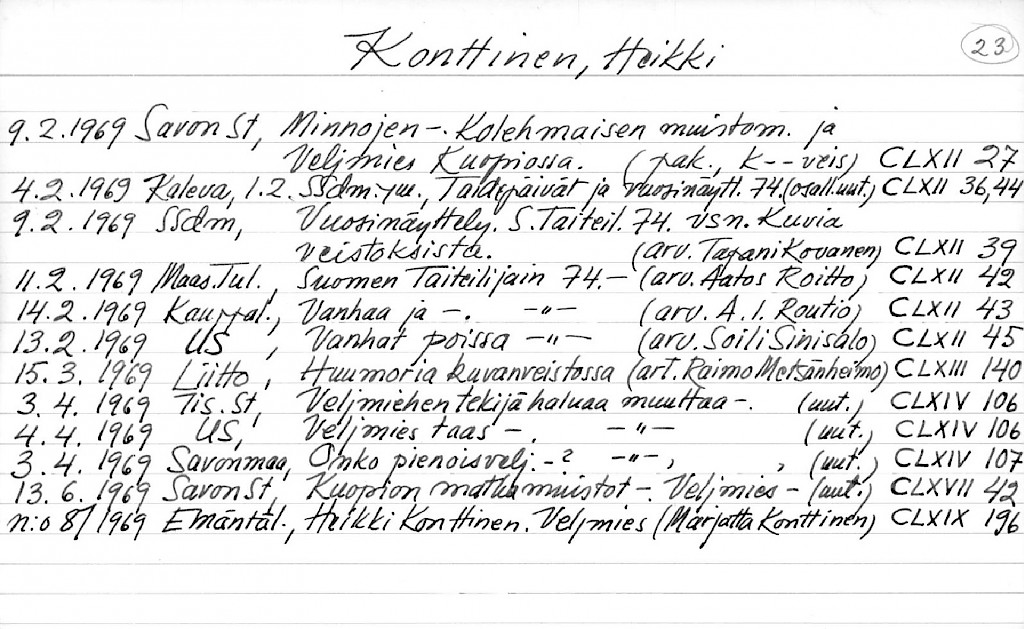 Konttinen, Heikki
23
9.2.1969 Savon St, Minnojen -. Kolehmaisen muistom. ja
Veljmies Kuopiossa. (pak., K--veis) CLXII 27
4.2.1969 Kaleva, 1.2. SSdm. ym., Taidepäivät ja vuosinäytt. 74. (osall. uut.) CLXII 36,44
9.2.1969 SSdm, Vuosinäyttely. S. Taiteil. 74. vsn. Kuvia
veistoksista. (arv. Tapani Kovanen) CLXII 39
11.2.1969 Maas. Tul., Suomen Taiteilijain 74.- (arv. Aatos Roitto) CLXII 42
14.2.1969 Kauppal., Vanhaa ja -. -"- (arv. A. I. Routio) CLXII 43
13.2.1969 US, Vanhat poissa -"- (arv. Soili Sinisalo) CLXII 45
15.3.1969 Liitto, Huumoria kuvanveistossa (art. Raimo Metsänheimo) CLXIII 140
3.4.1969 Tis. St, Veljmiehen tekijä haluaa muuttaa -. (uut.) CLXIV 106
4.4.1969 US, Veljmies taas -. -"- (uut.) CLXIV 106
3.4.1969 Savonmaa, Onko pienoisvelj. -? -"-, , (uut.) CLXIV 107
13.6.1969 Savon St, Kuopion matkamuistot -. Veljmies - (uut.) CLXVII 42
n:o 8/1969 Emäntäl., Heikki Konttinen. Veljmies (Marjatta Konttinen) CLXIX 196